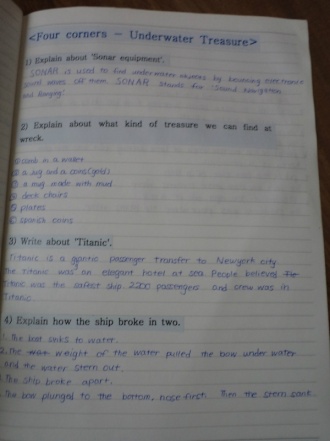 <Four corners - Underwater Treasure>
1) Explain about 'Sonar equipment'.
SONAR is used to find underwater by bouncing
sound waves off them. SONAR stands for 'Sound Navigation
and Ranging'
2) Explain about what kind of treasure we can find at
wreck.
① comb in a water
② a jug and a coins(gold)
③ a mug made with mud
④ deck chairs
⑤ plates
⑥ spanish coins
3) Write about 'Titanic'.
Titanic is a passenger transfer to Newyork city
The titanic was an elegant hotel at sea. People believed The
titanic was the safest ship. 2200 passengers and crew was in
Titanic
4) Explain how the ship broke in two.
1. The boat sinks to water.
2. The weight of the water pulled the bow under water
and the water stern out.
3. The ship broke apart.
4. The bow plungal to the bottom, nose first. the stern sank